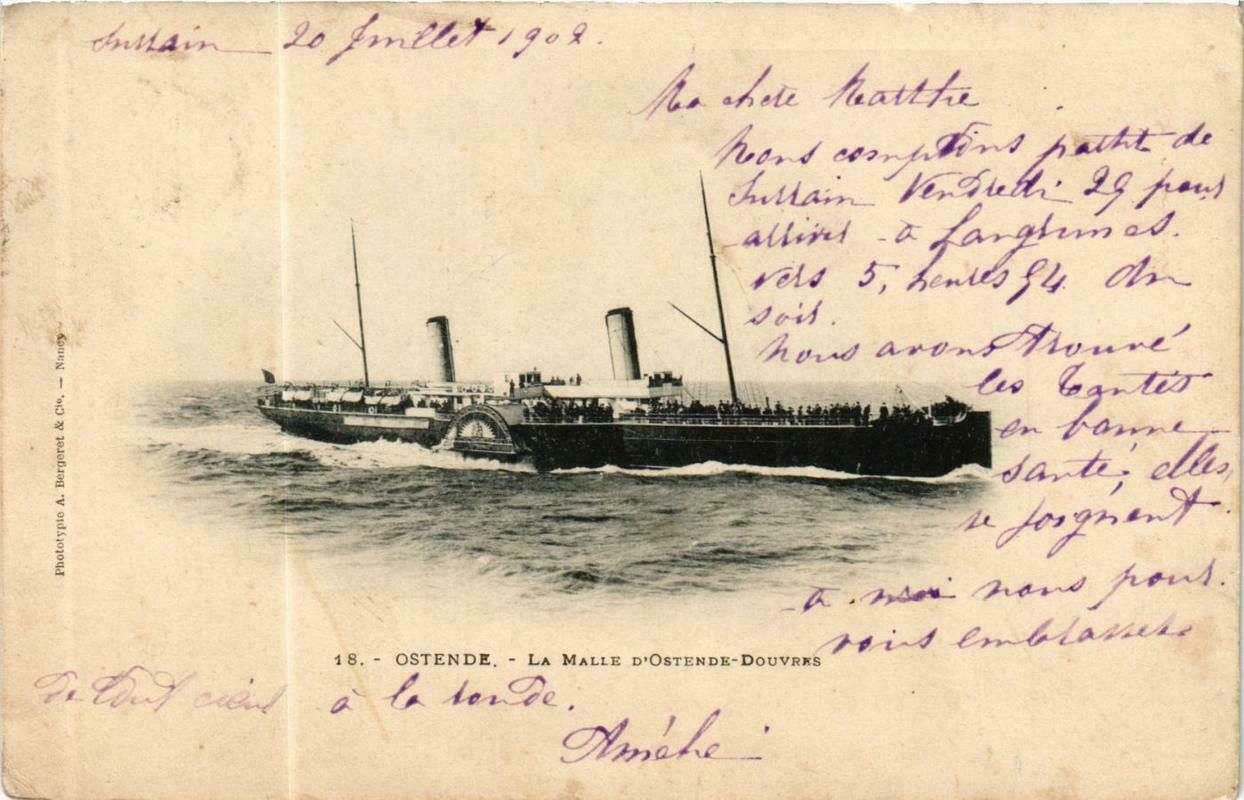 20 Juillet 1902.
Ma chère Marthe
Nous comptions partir de
Vendredi 29 pour
arriver à
vers 5, heures 54 du
soir.
Nous avons trouvé
les tantes
en bonne
santé; elles
se joignent
à moi nous pour
vous embrasser
de tout cœur à la ronde.
18. - OSTENDE. - LA MALLE D'OSTENDE-DOUVRES
Phototypie A. Bergeret & Cie. — Nancy